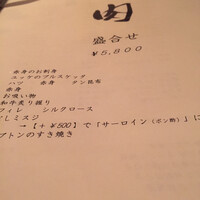 肉
盛合せ
¥5,800
赤身のお刺身
ユッケのブルスケッタ
ハツ 赤身 タン昆布
赤身
お吸い物
和牛炙り握り
フィレ シルクロース
ミスジ
→【+¥500】で「サーロイン(ポン酢)」に
プトンのすき焼き